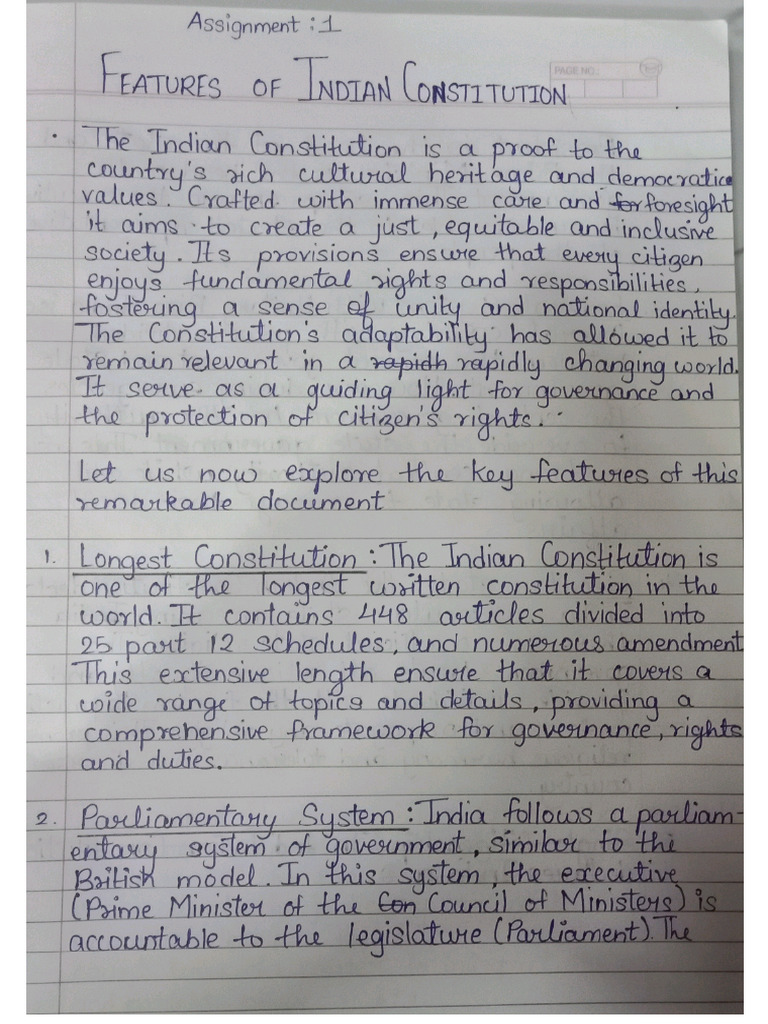 Assignment : 1
PAGE NO.:
FEATURES OF INDIAN CONSTITUTION
• The Indian Constitution is a proof to the
country's rich cultural heritage and democratice
values. Crafted with immense care and for foresight
it aims to create a just, equitable and inclusive
society. Its provisions ensure that every citizen
enjoys fundamental rights and responsibilities,
fostering a sense of unity and national identity.
The Constitution's adaptability has allowed it to
remain relevant in a rapidh rapidly changing world.
It serve as a guiding light for governance and
the protection of citizen's rights.
Let us now explore the key features of this
remarkable document
1. Longest Constitution : The Indian Constitution is
one of the longest written constitution in the
world. It contains 448 articles divided into
25 part 12 schedules, and numerous amendment
This extensive length ensure that it covers a
wide range of topics and details, providing a
comprehensive framework for governance, rights
and duties.
2. Parliamentary System : India follows a parliam-
entary system of government, similar to the
British model. In this system, the executive
(Prime Minister of the Con Council of Ministers) is
accountable to the legislature (Parliament). The